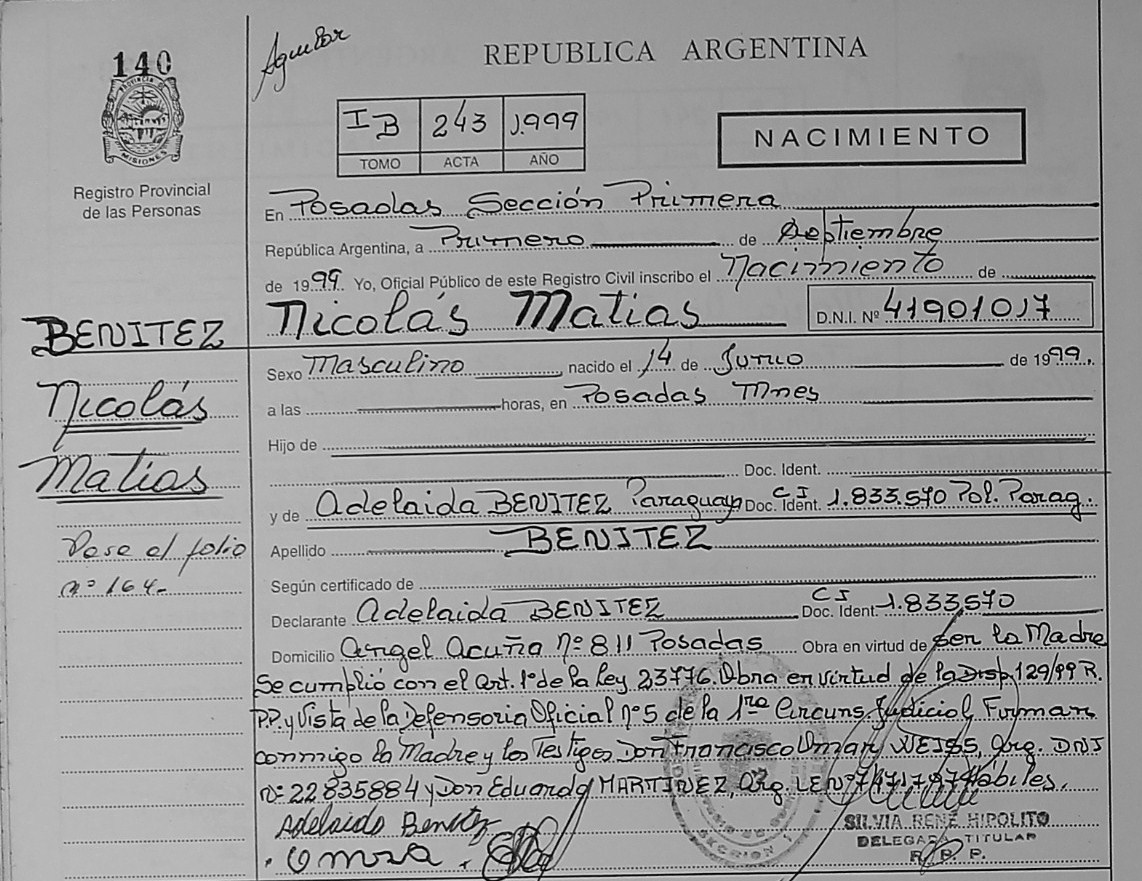 140
Aguilar
REPUBLICA ARGENTINA
PROVINCIA DE
MISIONES
I B 243 1.999
TOMO ACTA AÑO
NACIMIENTO
Registro Provincial
de las Personas
En Posadas Sección Primera
República Argentina, a Primero de Septiembre
de 1999. Yo, Oficial Público de este Registro Civil inscribo el Nacimiento de
Nicolás Matias D.N.I. Nº 41901017
BENITEZ
Nicolás
Matias
Sexo Masculino, nacido el 14 de Junio de 1999.
a las horas, en Posadas Mnes
Hijo de
Doc. Ident.
y de Adelaida BENITEZ Paraguaya Doc. Ident. CI 1.833.570 Pol. Parag.
Apellido BENITEZ
Pase al folio
nº 164-
Según certificado de
Declarante Adelaida BENITEZ Doc. Ident. CI 1.833.570
Domicilio Angel Acuña Nº 811 Posadas Obra en virtud de ser la Madre
Se cumplió con el Art. 1º de la Ley 23776. Obra en virtud de la Disp. 129/99 R.
P.P. y Vista de la Defensoria Oficial nº 5 de la 1ra Circuns. Judicial, Firman
conmigo la Madre y los Testigos Don Francisco Omar WEISS, Arg. DNI
Nº 22835884 y Don Eduardo MARTINEZ, Arg. LE Nº Habiles.
Adelaida Benitez
SILVIA RENÉ HIPOLITO
DELEGADA TITULAR
R. P. P.
SECCION 1